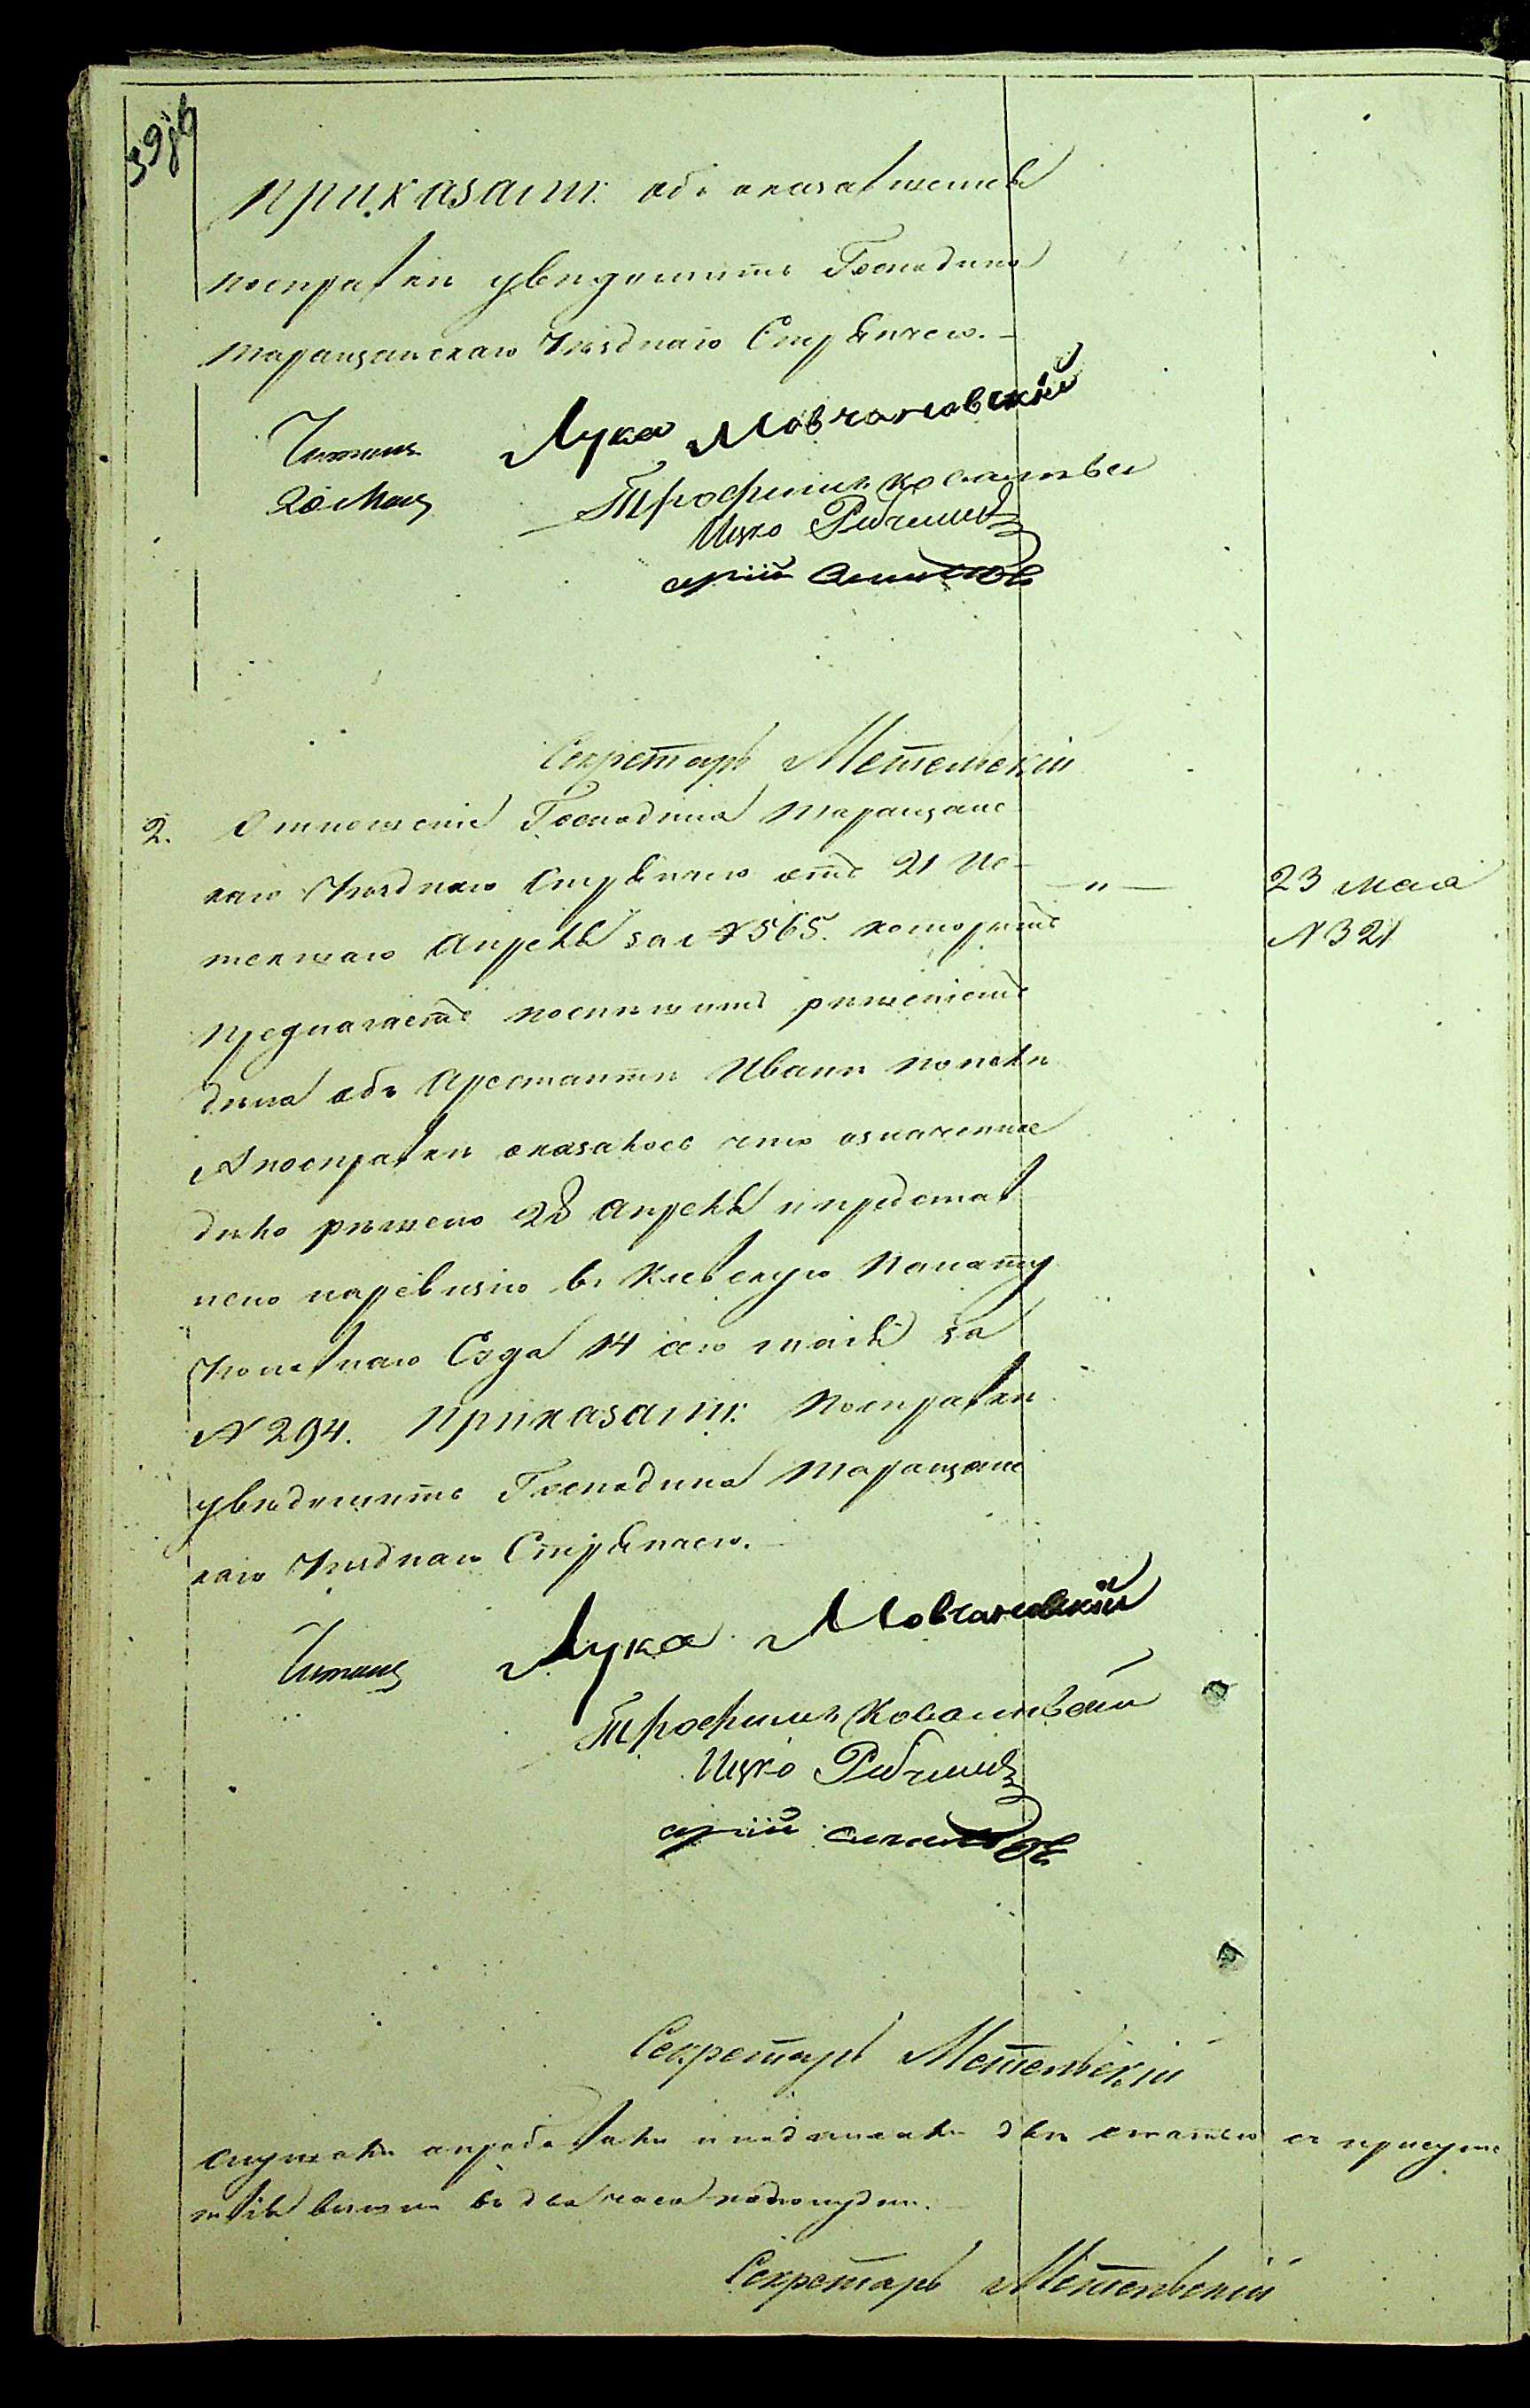 39об
Приказали: объ оказавшемся
посправки увѣдомить Господина
Таращанскаго Уѣзднаго Стряпчего.
Читалъ Лука Мовчановскій
20 Мая Трофимъ
Ицко
арій
Секретарь Метельскій
2. Отношеніе Господина Таращанс
каго Уѣзднаго Стряпчего отъ 21 Ис-
текшаго Апрѣля за № 565. которымъ
—"— 23 мая
№ 321
предлагаетъ поспѣшить рѣшеніемъ
дѣла объ Арестантѣ Иванѣ
А посправки оказалось что означенное
дѣло рѣшено 28 Апрѣля и представ
лено наревизію въ Кіевскую Палату
Уголовнаго Суда 14 сего мая за
№ 294. Приказали: Посправки
увѣдомить Господина Таращанс
каго Уѣзднаго Стряпчего.
Читалъ Лука Мовчановскій
Трофимъ
Ицко
арій
Секретарь Метельскій
слушали и подписали двѣ статьи а присутс
твіе вышли въ два часа пополудни.
Секретарь Метельскій